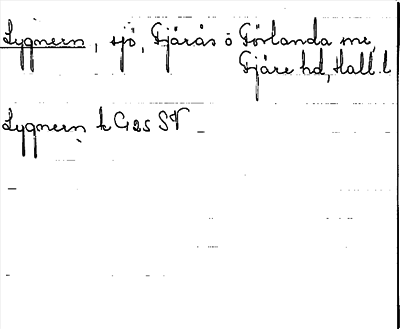 Lygnern, sjö, Fjärås o Förlanda snr,
Fjäre hd, Hall. l
Lygnern k G25 SV